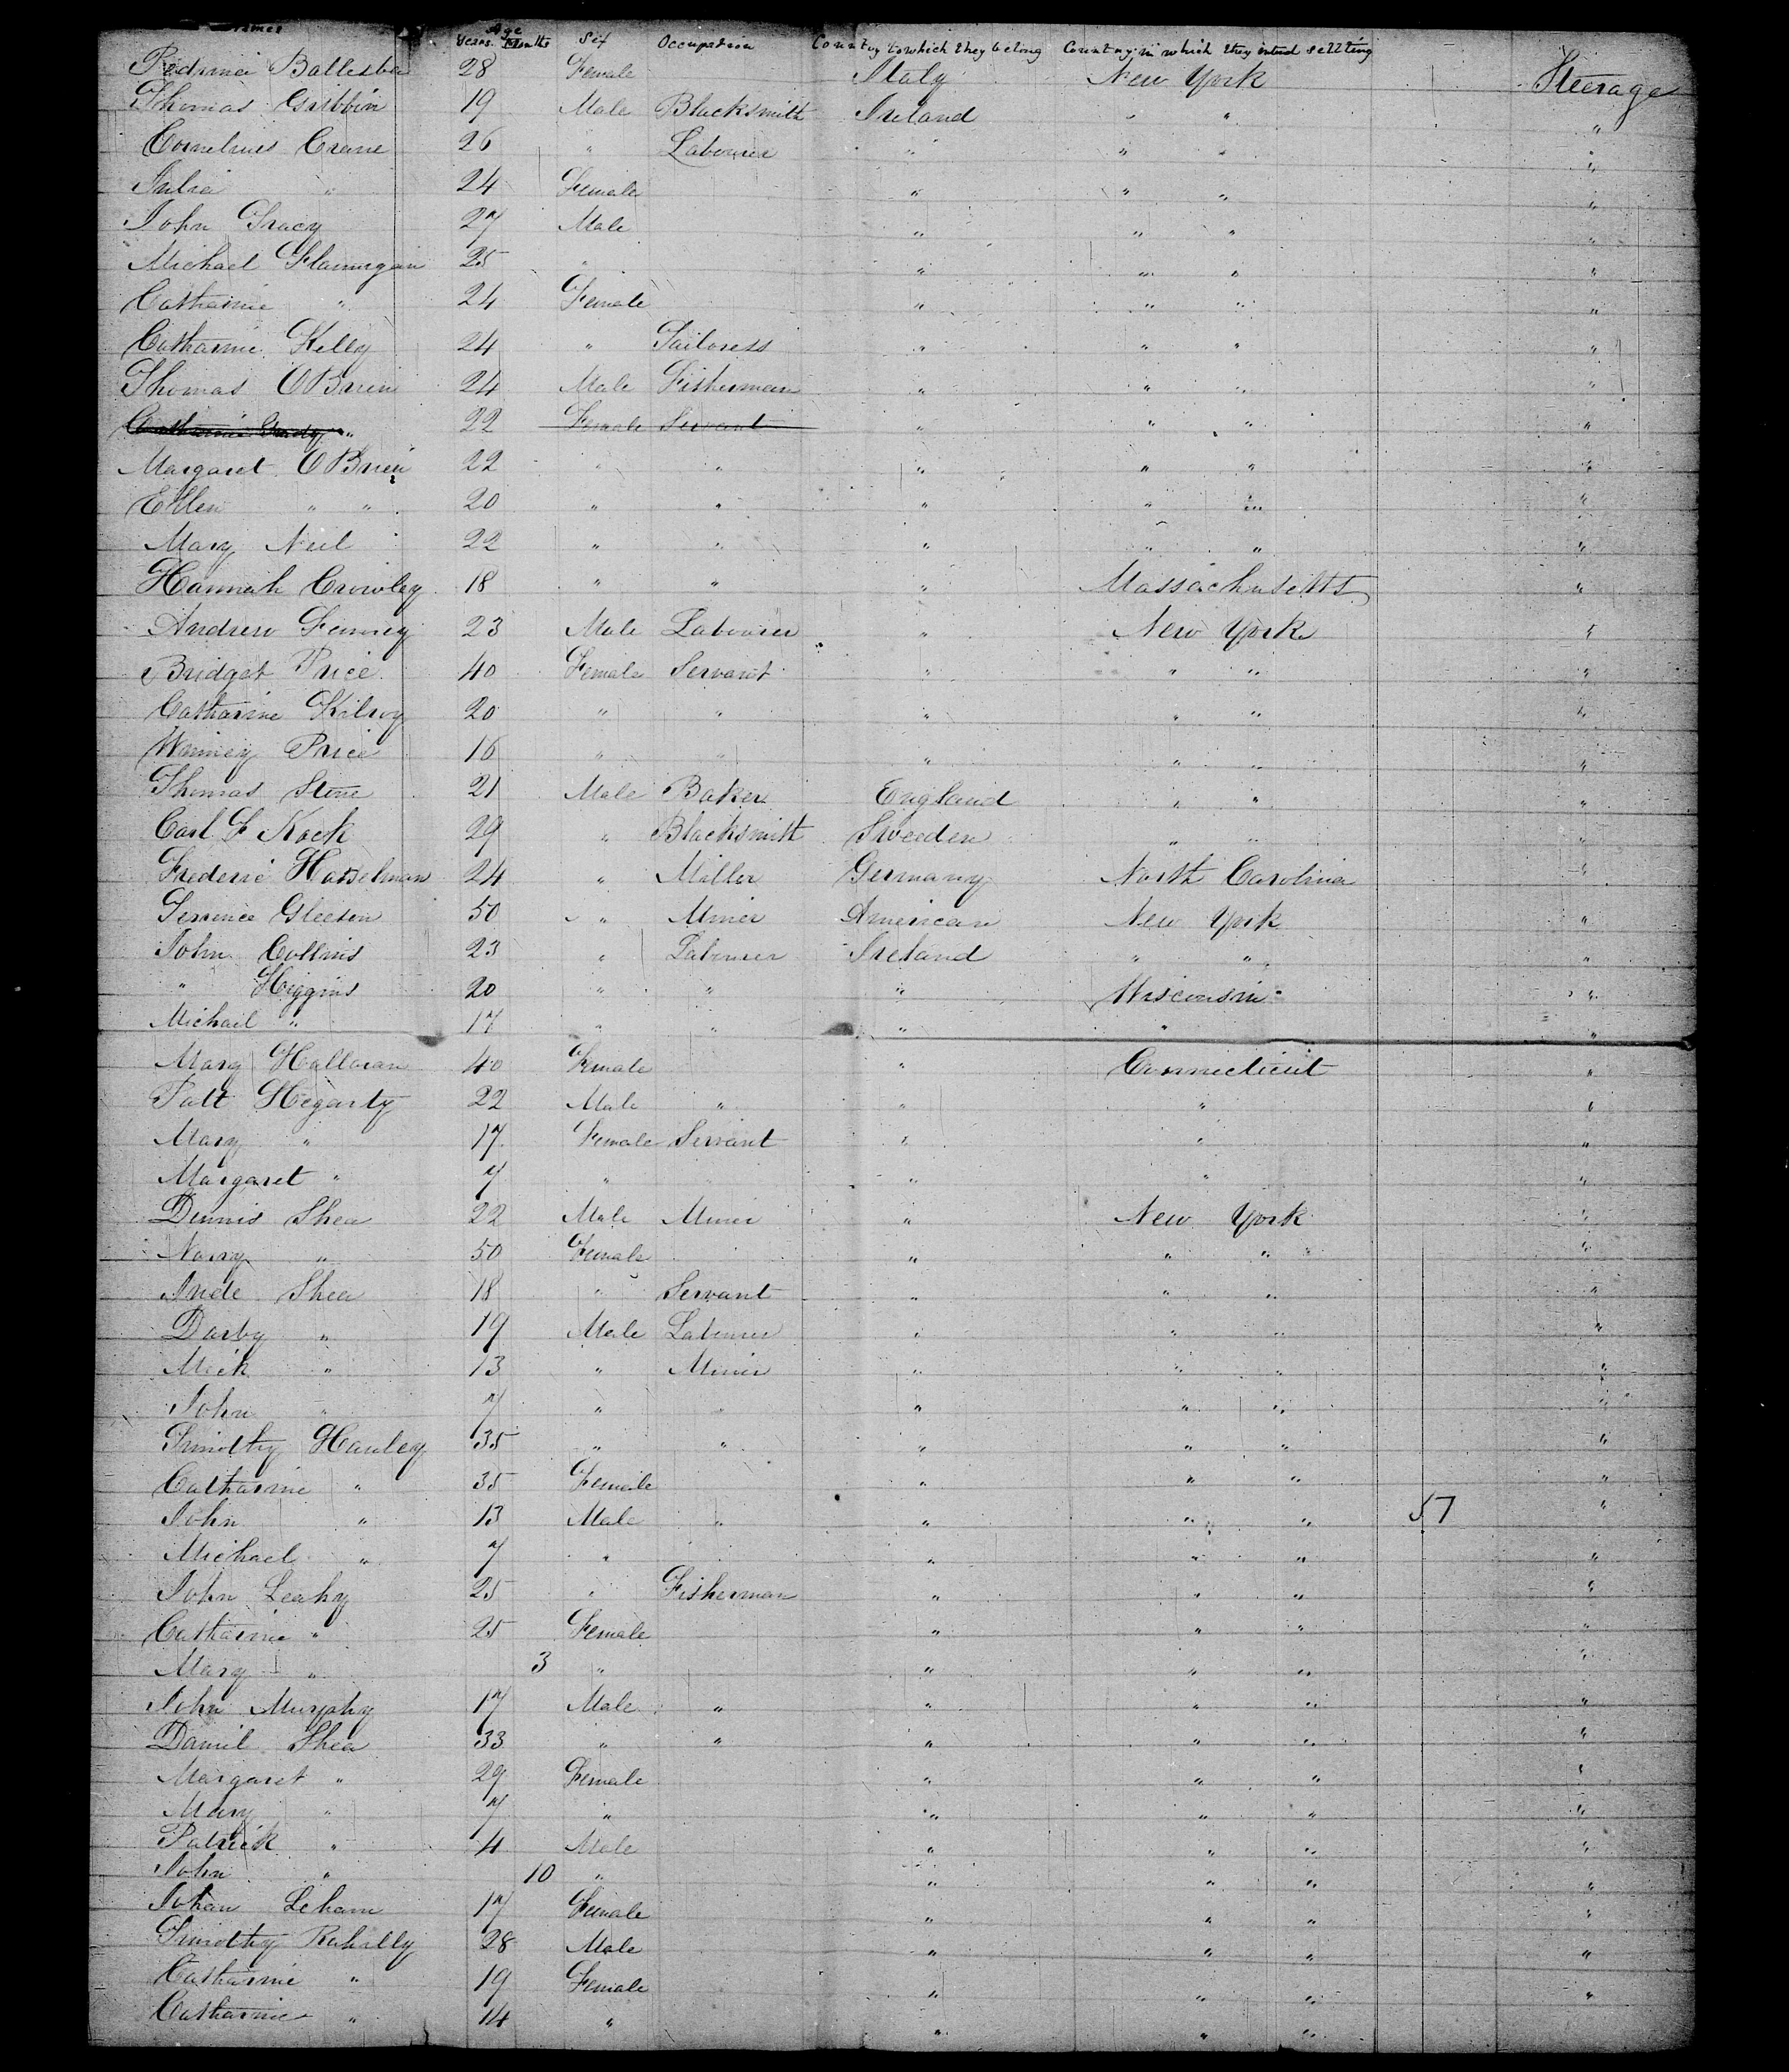 Names Age Years. Months Sex Occupation Country to which they belong Country in which they intend settling
Ballesba 28 Female Italy New York Steerage
Thomas Gribbin 19 Male Blacksmith Ireland " " "
Cornelius Crane 26 " Labourer " " " "
Julia " 24 Female " " " "
John Tracy 27 Male " " " "
Michael Flannigan 25 " " " " "
Catharine " 24 Female " " " "
Catharine Kelly 24 " Tailoress " " " "
Thomas OBrien 24 Male Fisherman " " " "
Catharine Grady " 22 Female Servant " " " "
Margaret OBrien 22 " " " " " "
Ellen " " 20 " " " " " "
Mary Neil 22 " " " " " "
Hannah Crowley 18 " " " Massachusetts "
Andrew Feeney 23 Male Labourer " New York "
Bridget Price 40 Female Servant " " " "
Catharine Kilroy 20 " " " " " "
Winney Price 16 " " " " " "
Thomas Stone 21 Male Baker England " " "
Carl F Kock 29 " Blacksmith Sweeden " " "
Frederic Hasselman 24 " Miller Germany North Carolina "
Terrence Gleeson 50 " Miner American New York "
John Collins 23 " Labourer Ireland " " "
" Higgins 20 " " " Wisconsin "
Michail " 17 " " " " "
Mary Halloran 40 Female " Connecticut "
Patt Hegarty 22 Male " " " "
Mary " 17 Female Servant " " "
Margaret " 7 " " " "
Dennis Shea 22 Male Miner " New York "
Nancy " 50 Female " " " "
Shea 18 " Servant " " " "
Darby " 19 Male Labourer " " " "
Mick " 13 " Miner " " " "
John " 7 " " " " " "
Timothy Hanley 35 " " " " " "
Catharine " 35 Female " " " "
John " 13 Male " " " " 57 "
Michael " 7 " " " " "
John Leahy 25 " Fisherman " " " "
Catharine " 25 Female " " " "
Mary " 3 " " " " "
John Murphy 17 Male " " " " "
Daniel Shea 33 " " " " " "
Margaret " 29 Female " " " "
Mary " 7 " " " " "
Patrick " 4 Male " " " "
John " 10 " " " " "
Johan Lehane 17 Female " " " "
Timothy Rahilly 28 Male " " " "
Catharine " 19 Female " " " "
Catharine " 14 " " " "